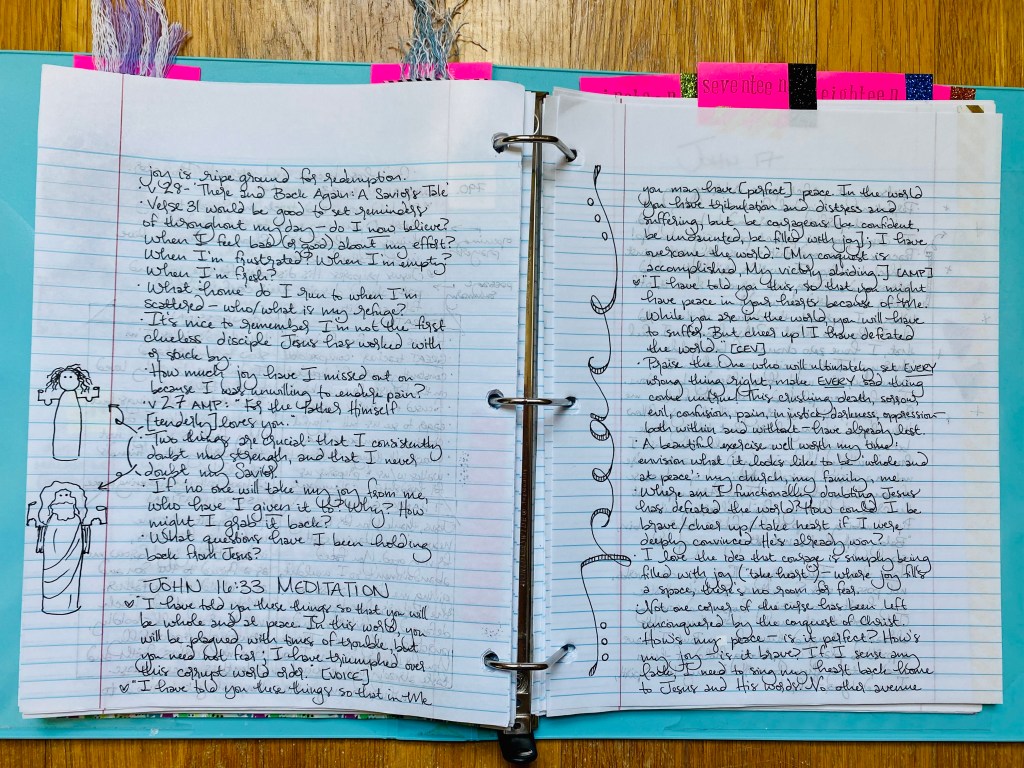 seventeen
eighteen
joy is ripe ground for redemption.
· v 28 - 'There and Back Again: A Savior's Tale'
· Verse 31 would be good to set reminders
of throughout my day - do I now believe?
When I feel bad (or good) about my effort?
When I'm frustrated? When I'm empty?
When I'm fresh?
· What 'home' do I run to when I'm
scattered - who/what is my refuge?
· It's nice to remember I'm not the first
clueless disciple Jesus has worked with
or stuck by.
· How much joy have I missed out on
because I was unwilling to endure pain?
· v 27 AMP: "For the Father Himself
[tenderly] loves you."
· Two things are crucial: that I consistently
doubt my strength, and that I never
doubt my Savior.
· If 'no one will take' my joy from me,
who have I given it to? Why? How
might I grab it back?
· What questions have I been holding
back from Jesus?
JOHN 16:33 MEDITATION
♡ "I have told you these things so that you will
be whole and at peace. In this world, you
will be plagued with times of trouble, but
you need not fear; I have triumphed over
this corrupt world order." [VOICE]
♡ "I have told you these things so that in Me
you may have [perfect] peace. In the world
you have tribulation and distress and
suffering, but be courageous [be confident,
be undaunted, be filled with joy]; I have
overcome the world." [My conquest is
accomplished, My victory abiding.] [AMP]
♡ "I have told you this, so that you might
have peace in your hearts because of Me.
While you are in the world, you will have
to suffer. But cheer up! I have defeated
the world." [CEV]
· Praise the One who will ultimately set EVERY
wrong thing right, make EVERY sad thing
come untrue! This crushing death, sorrow,
evil, confusion, pain, injustice, darkness, oppression -
both within and without - have already lost.
· A beautiful exercise well worth my time:
envision what it looks like to be 'whole and
at peace': my church, my family, me.
· Where am I functionally doubting Jesus
has defeated the world? How could I be
brave/cheer up/take heart if I were
deeply convinced He's already won?
· I love the idea that courage is simply being
filled with joy ('take heart') - where joy fills
a space, there's no room for fear.
· Not one corner of the curse has been left
unconquered by the conquest of Christ.
· How's my peace - is it perfect? How's
my joy - is it brave? If I sense any
lack, I need to sing my heart back home
to Jesus and His words. No other avenue